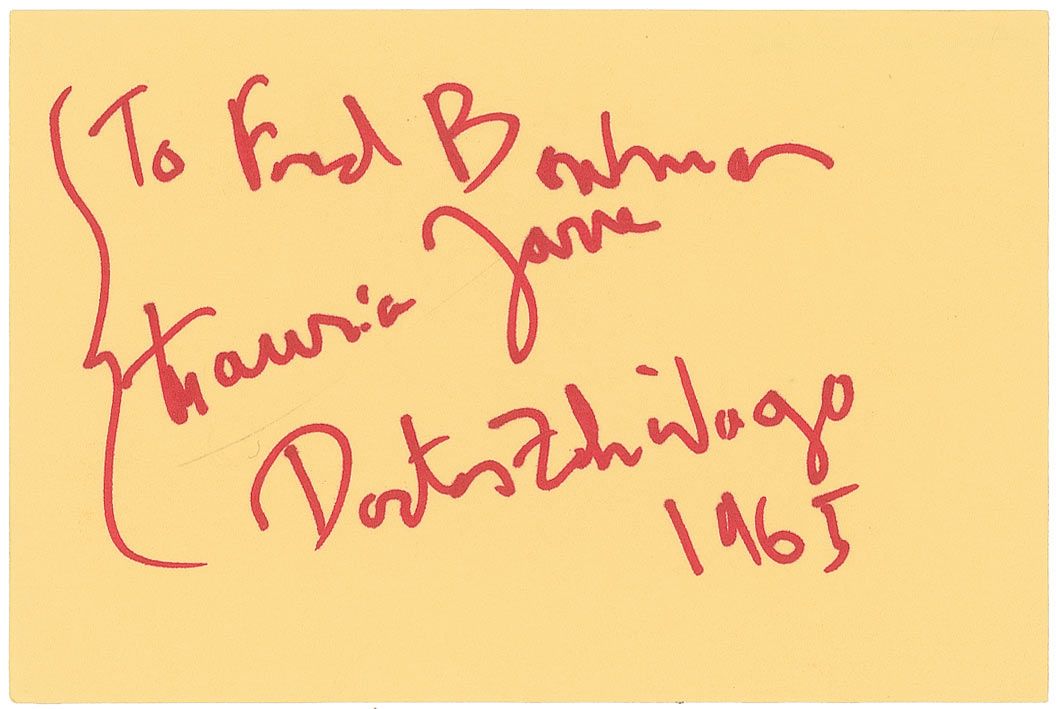 To Fred Bowman
Maurice Jarre
Doctor Zhivago
1965